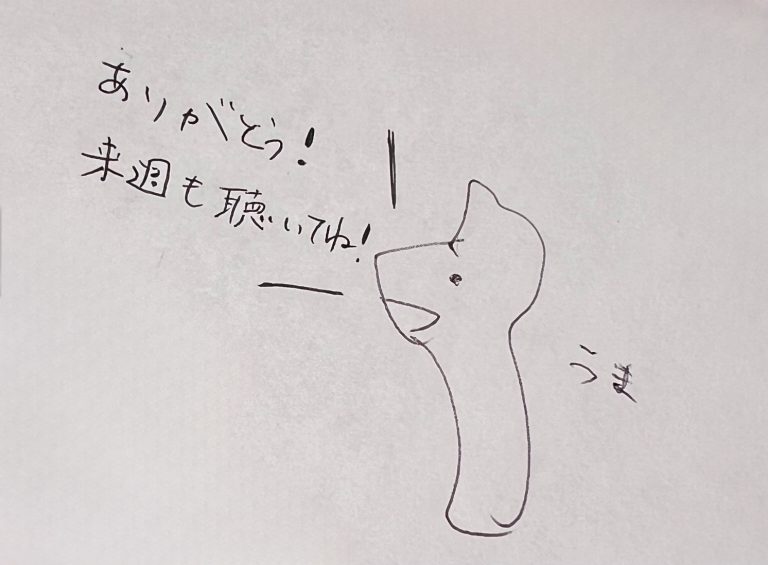 ありがどう!
来週も聴いてね!
うま